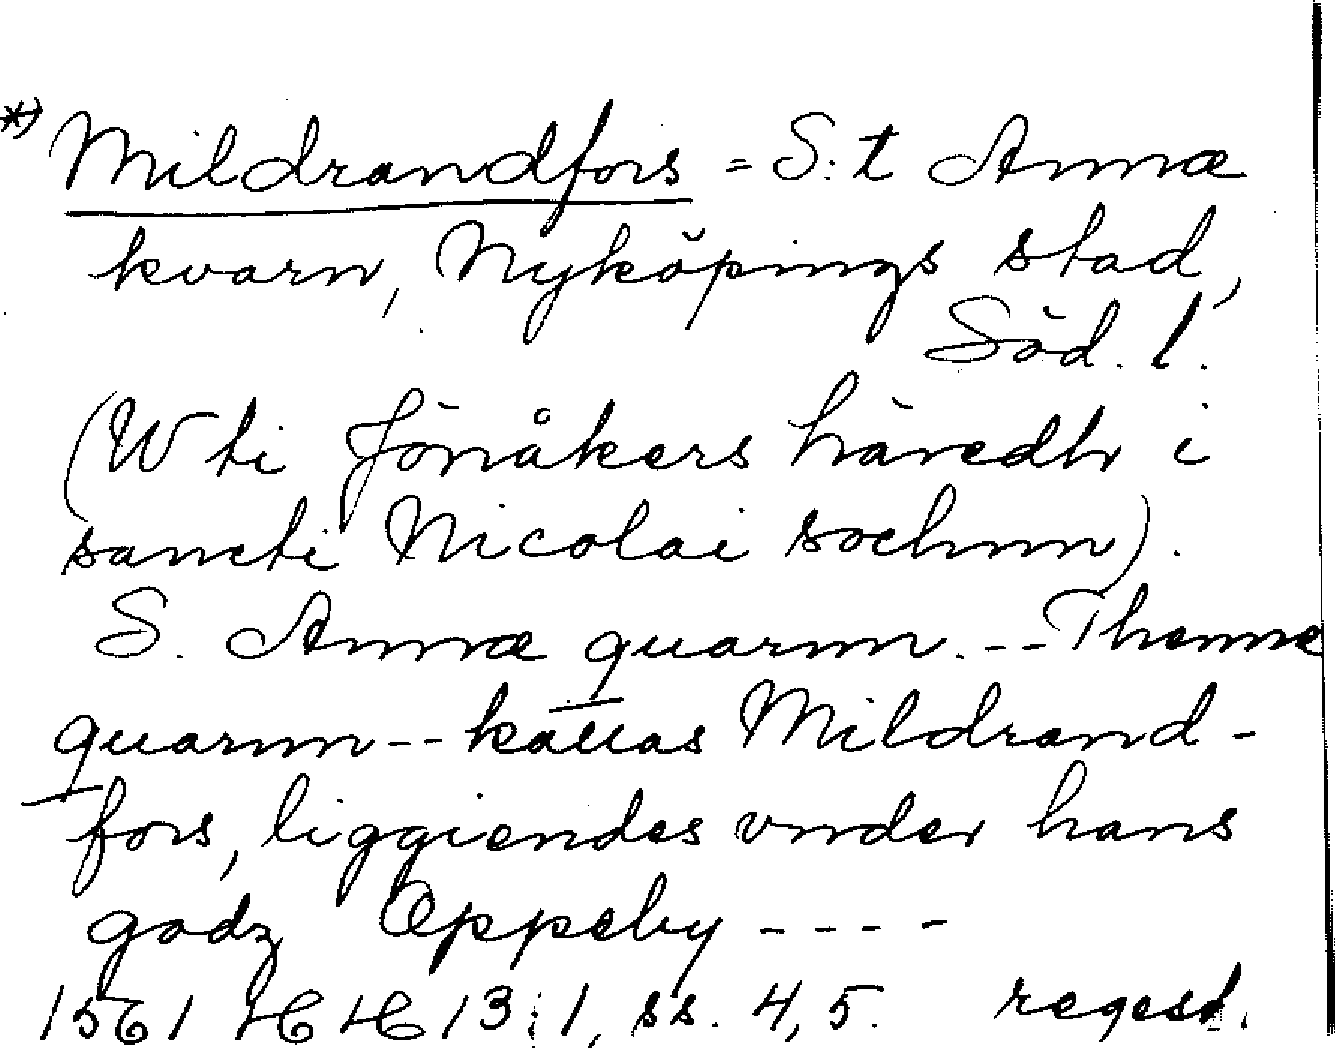 *) Mildrandfors = S:t Annæ
kvarn, Nyköpings stad,
Söd. l.
(W ti Jönåkers häredh i
sancti Nicolai sochnn).
S. Annæ quarnn. -- Thenne
quarnn -- kallas Mildrand-
fors, liggiendes vnder hans
godz Oppeby ----
1561 HH 13:1, ss. 4, 5. regest.